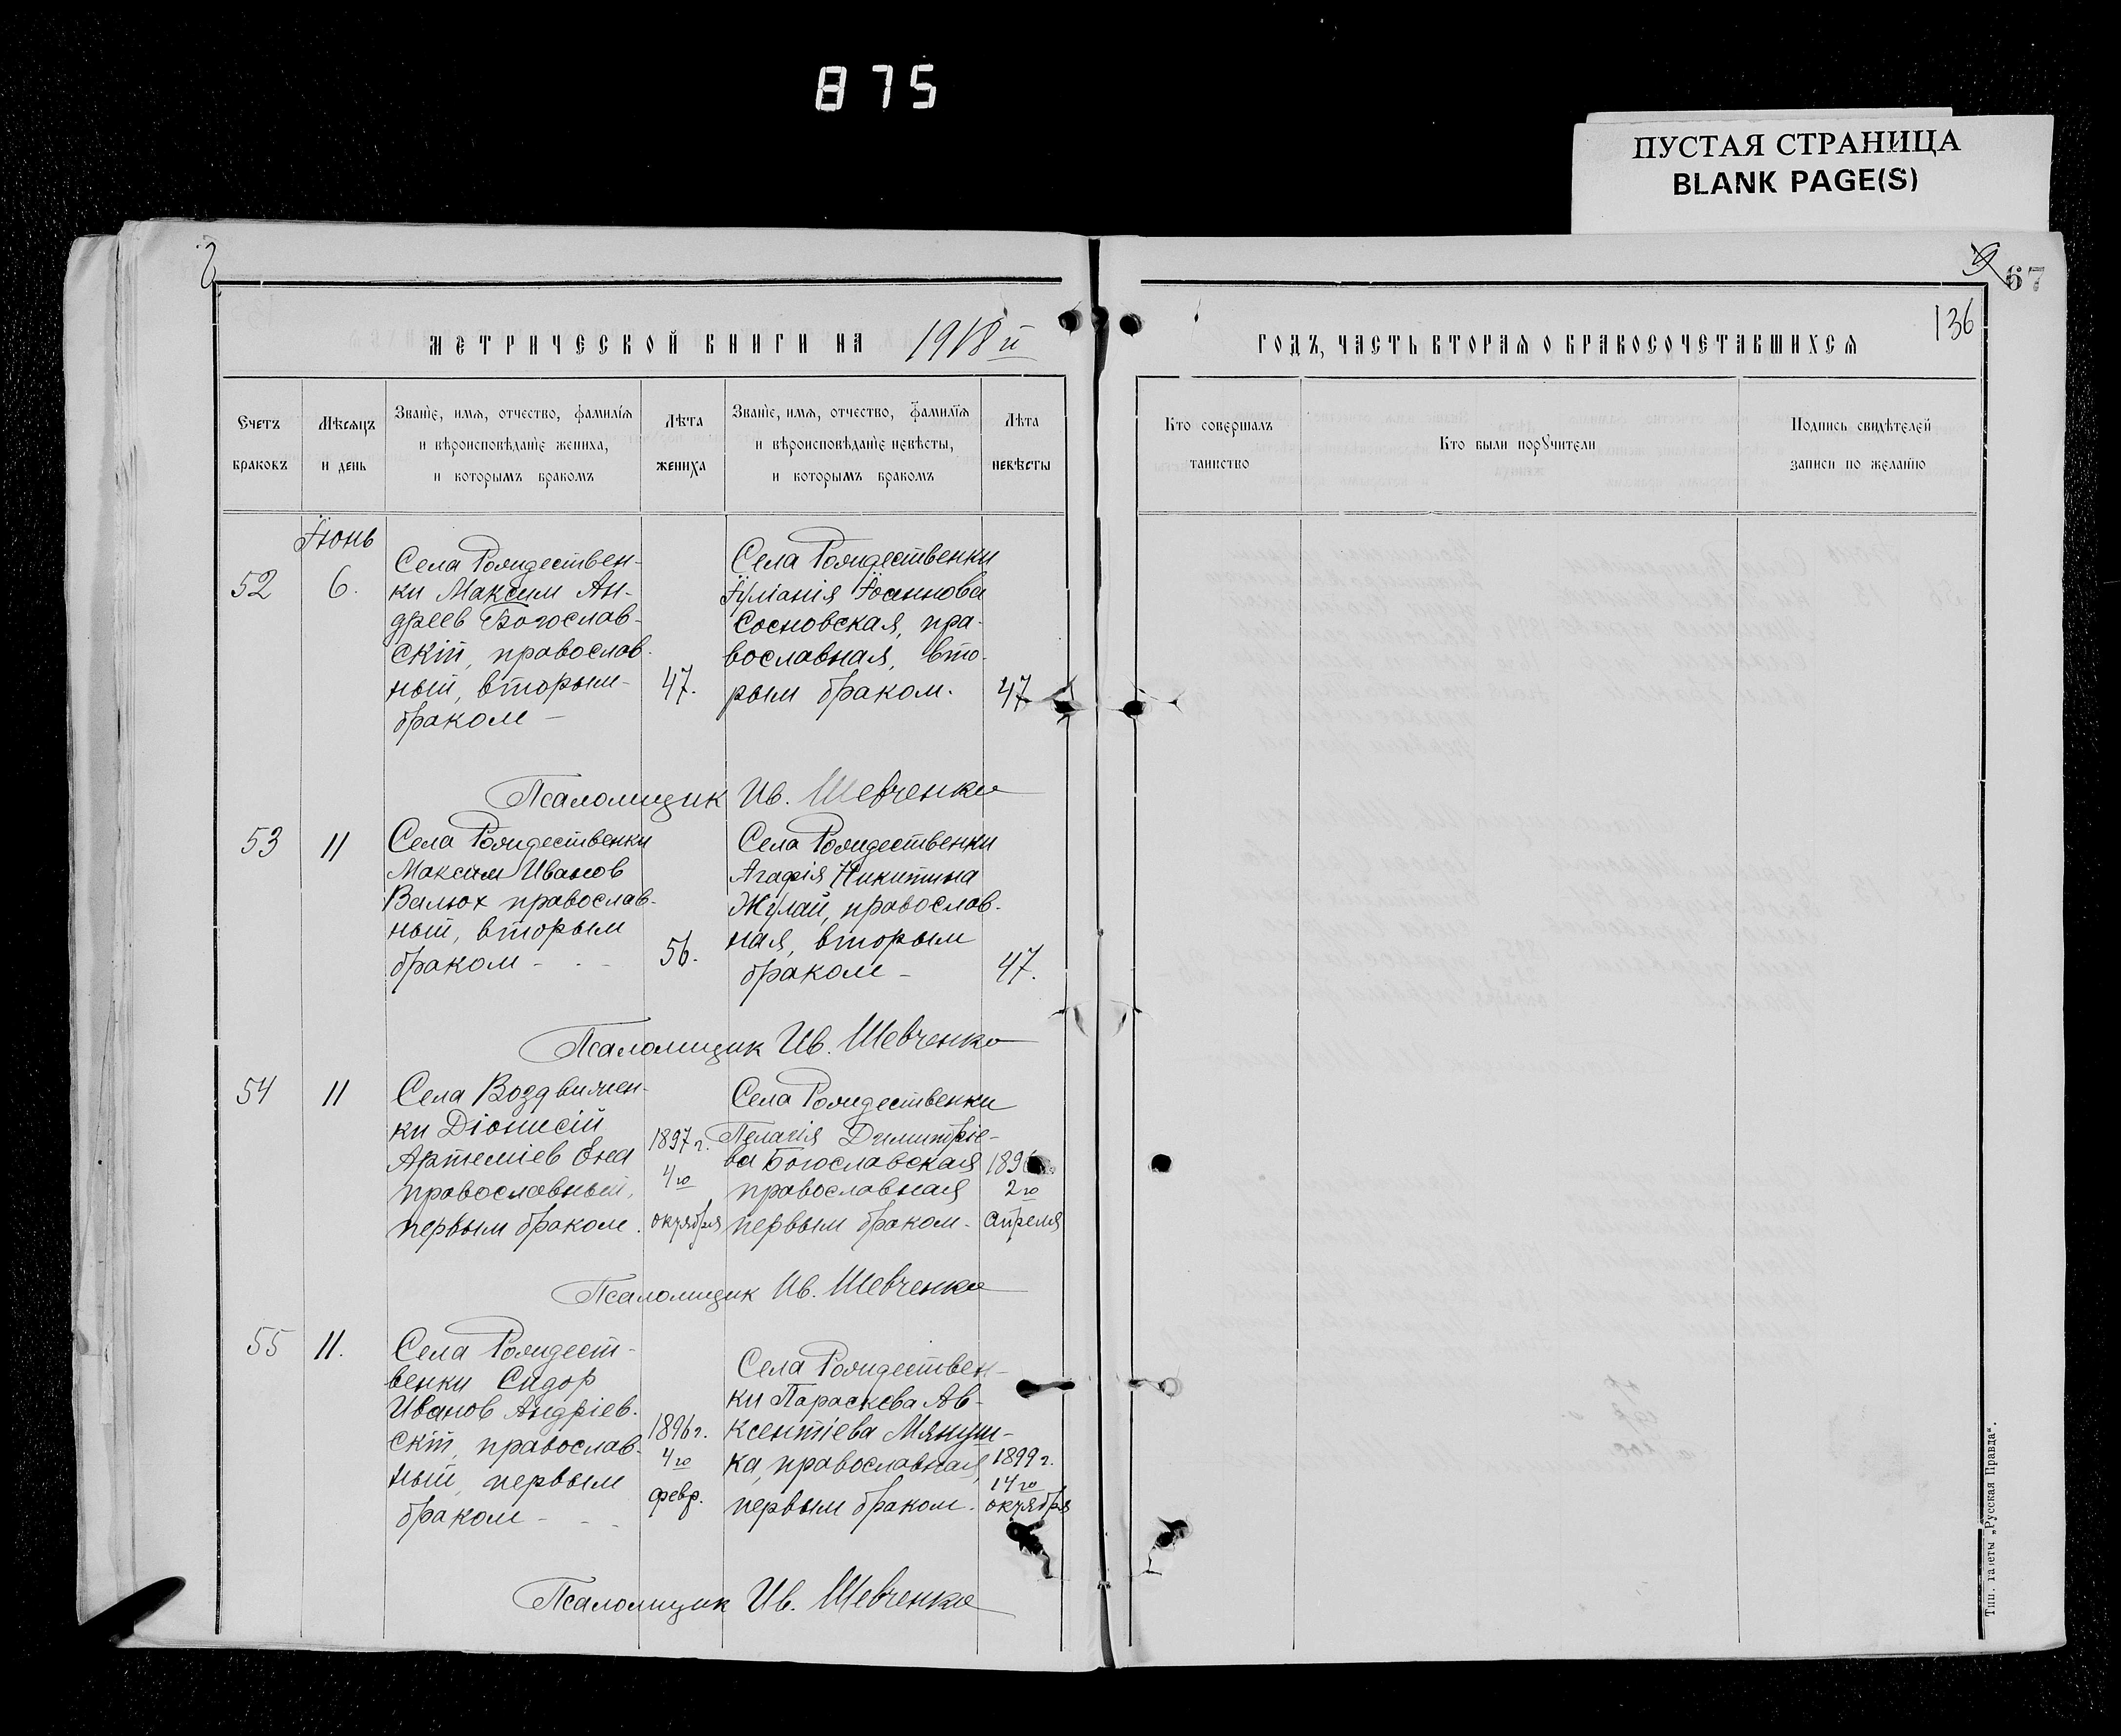 875
ПУСТАЯ СТРАНИЦА
BLANK PAGE(S)
67
136
МЕТРИЧЕСКОЙ КНИГИ НА 1918 й
ГОДЪ, ЧАСТЬ ВТОРАЯ О БРАКОСОЧЕТАВШИХСЯ
Счетъ
браковъ
Мѣсяцъ
и день
Званіе, имя, отчество, фамилія
и вѣроисповѣданіе жениха,
и которымъ бракомъ
Лѣта
жениха
Званіе, имя, отчество, фамилія
и вѣроисповѣданіе невѣсты,
и которымъ бракомъ
Лѣта
невѣсты
Кто совершалъ
таинство
Кто были поручители
Подпись свидѣтелей
записи по желанію
Іюнь
52
6.
Села Рождествен-
ки Максим Ан-
дреев Богослав-
скій, православ-
ный, вторым
браком –
47.
Села Рождественки
Іуліанія Іоаннова
Сосновская, пра-
вославная, вто-
рым браком.
47
Псаломщик Ив. Шевченко
53
11
Села Рождественки
Максим Иванов
Валюх православ-
ный, вторым
браком - . -
56.
Села Рождественки
Агафія Никитина
Жулай, православ-
ная, вторым
браком –
47.
Псаломщик Ив. Шевченко
54
11
Села Воздвижен-
ки Діонисій
Артеміев
православный,
первым браком.
1897 г.
4го
октября
Села Рождественки
Пелагія Димитріе-
ва Богославская
православная
первым браком.
2го
апреля
Псаломщик Ив. Шевченко
55
11.
Села Рождест-
венки Сидор
Иванов Андріев-
скій, православ-
ный, первым
браком - . -
1896 г.
4го
февр.
Села Рождествен-
ки Параскева Ав-
ксентіева Мянуш-
ка, православная,
первым браком.
1899 г.
14го
октября
Псаломщик Ив. Шевченко
Тип. газеты „Русская Правда“.